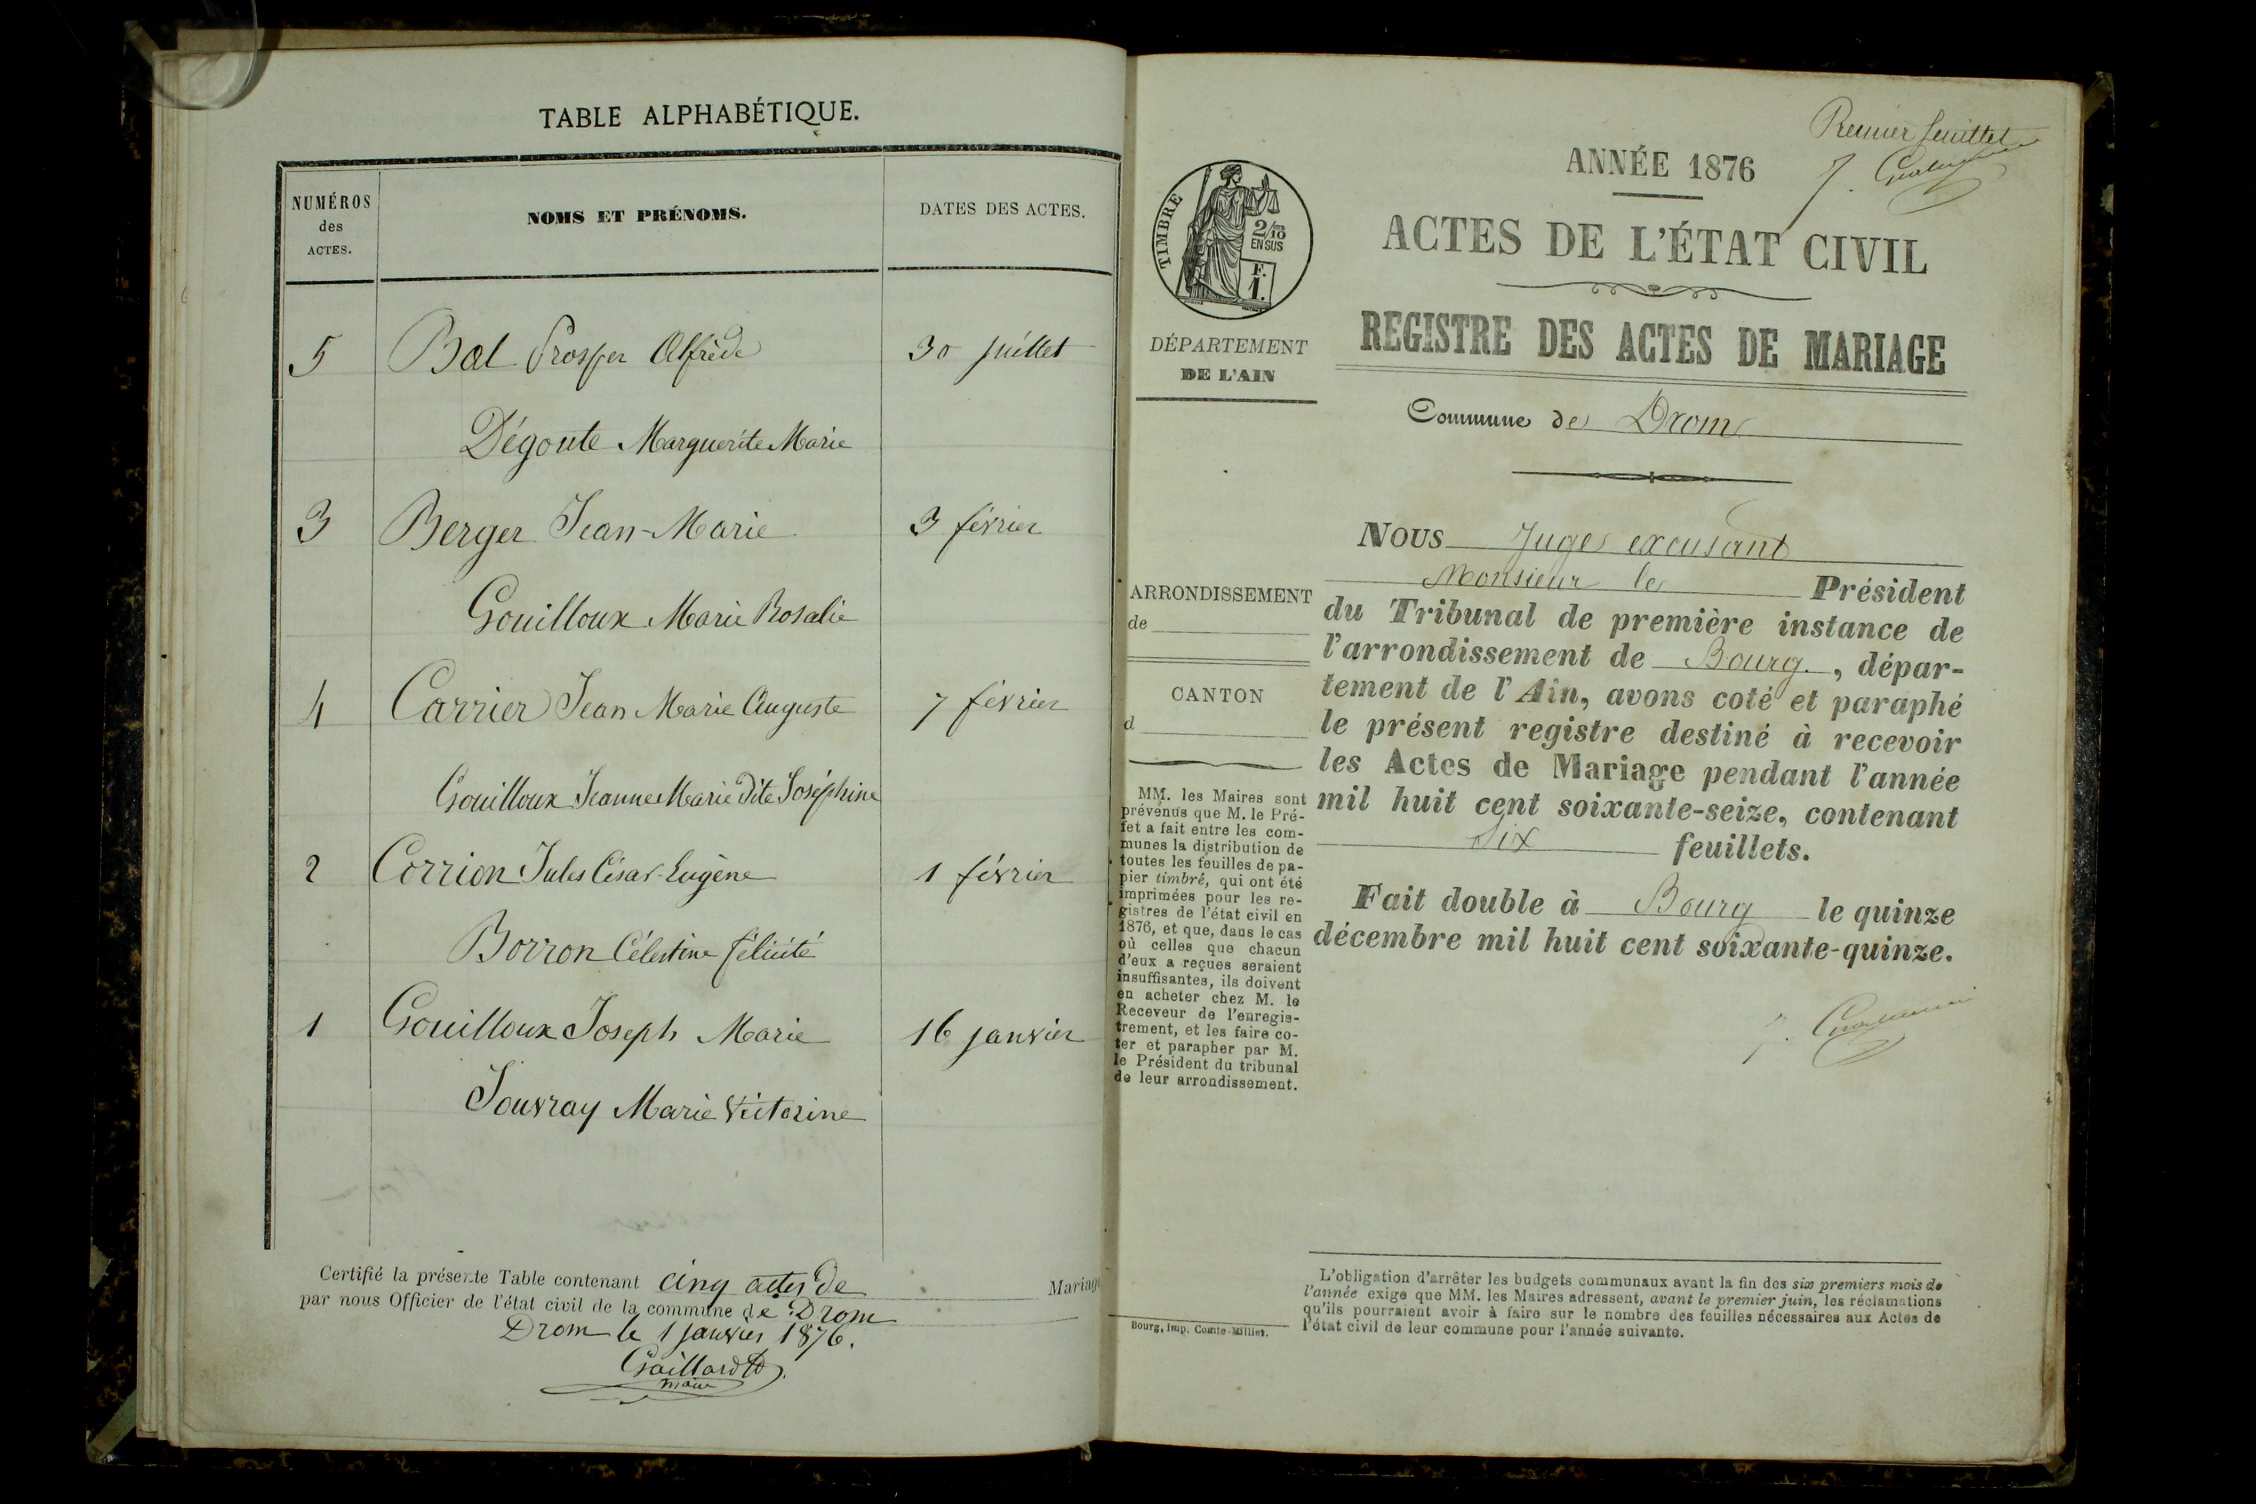 TABLE ALPHABÉTIQUE.
NUMÉROS
des
ACTES.
NOMS ET PRÉNOMS.
DATES DES ACTES.
5 Bal Prosper Alfrède 30 juillet
Dégoute Marguerite Marie
3 Berger Jean-Marie 3 février
Gouilloux Marie Rosalie
4 Carrier Jean Marie Auguste 7 février
Gouilloux Jeanne Marie dite Joséphine
2 Corrion Jules César-Eugène 1 février
Borron Célestine félicité
1 Gouilloux Joseph Marie 16 janvier
Jouvray Marie Victorine
Certifié la présente Table contenant cinq actes de Mariage
par nous Officier de l'état civil de la commune de Drom
Drom le 1 janvier 1876.
Gaillard
maire
Premier feuillet
ANNÉE 1876
ACTES DE L'ÉTAT CIVIL
REGISTRE DES ACTES DE MARIAGE
TIMBRE
2/10
EN SUS
F.
1.
DÉPARTEMENT
DE L'AIN
Commune de Drom
ARRONDISSEMENT
de
CANTON
d
MM. les Maires sont
prévenus que M. le Pré-
fet a fait entre les com-
munes la distribution de
toutes les feuilles de pa-
pier timbré, qui ont été
imprimées pour les re-
gistres de l'état civil en
1876, et que, dans le cas
où celles que chacun
d'eux a reçues seraient
insuffisantes, ils doivent
en acheter chez M. le
Receveur de l'enregis-
trement, et les faire co-
ter et parapher par M.
le Président du tribunal
de leur arrondissement.
Nous Juge excusant
Monsieur le Président
du Tribunal de première instance de
l'arrondissement de Bourg, dépar-
tement de l'Ain, avons coté et paraphé
le présent registre destiné à recevoir
les Actes de Mariage pendant l'année
mil huit cent soixante-seize, contenant
Six feuillets.
Fait double à Bourg le quinze
décembre mil huit cent soixante-quinze.
Bourg, Imp. Comte-Milliet.
L'obligation d'arrêter les budgets communaux avant la fin des six premiers mois de
l'année exige que MM. les Maires adressent, avant le premier juin, les réclamations
qu'ils pourraient avoir à faire sur le nombre des feuilles nécessaires aux Actes de
l'état civil de leur commune pour l'année suivante.